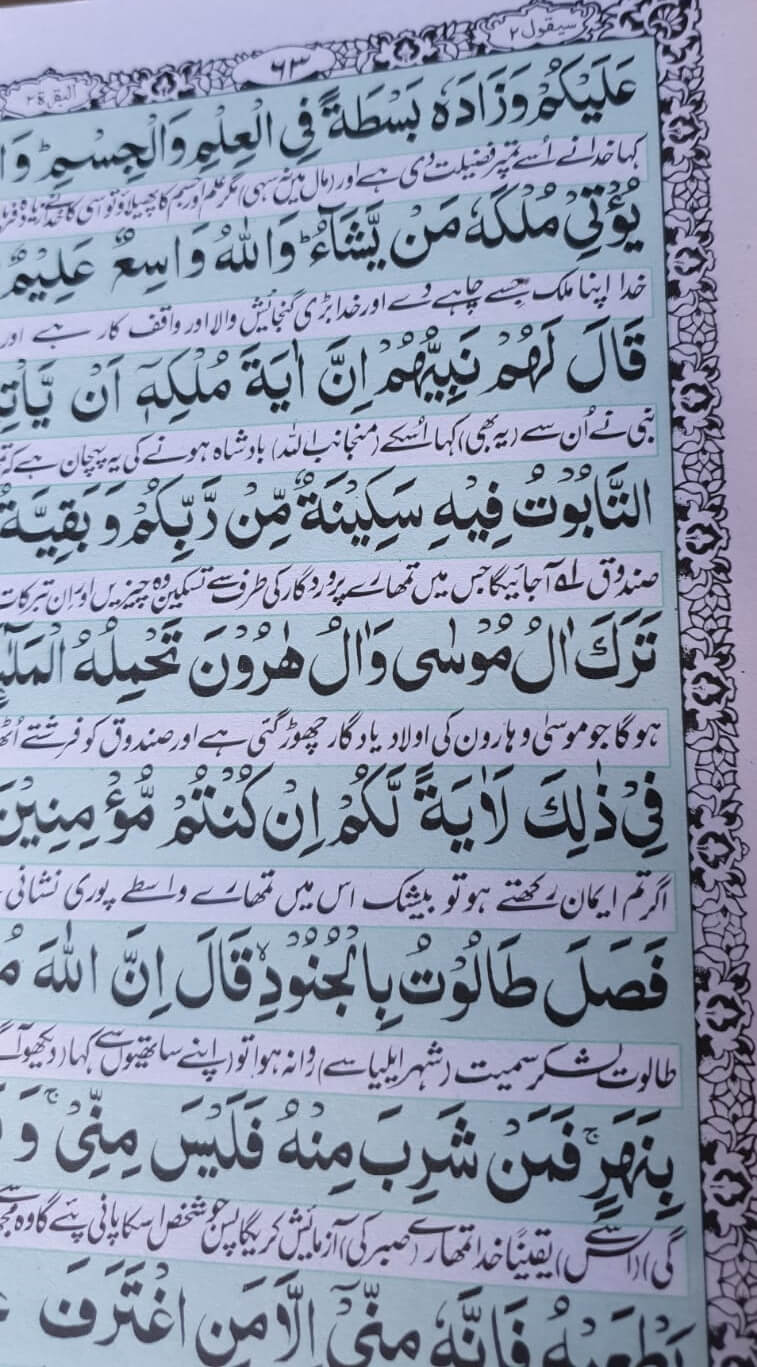 سیقول ۲ ۶۳ البقرة ۲
عَلَیۡکُمۡ وَزَادَہٗ بَسۡطَۃً فِی الۡعِلۡمِ وَالۡجِسۡمِ ؕ
کہا خدا نے اُسے تمپر فضیلت دی ہے اور (مال میں نہ سہی) مگر علم اور جسم کا پھیلاؤ تو اسی کا خدا نے
یُؤۡتِیۡ مُلۡکَہٗ مَنۡ یَّشَآءُ ؕ وَاللّٰہُ وَاسِعٌ عَلِیۡمٌ
خدا اپنا ملک جسے چاہے دے اور خدا بڑی گنجایش والا اور واقف کار ہے اور
قَالَ لَہُمۡ نَبِیُّہُمۡ اِنَّ اٰیَۃَ مُلۡکِہٖۤ اَنۡ
نبی نے اُن سے (یہ بھی) کہا اُسکے (منجانب اللہ) بادشاہ ہونے کی یہ پہچان ہے کہ
التَّابُوۡتُ فِیۡہِ سَکِیۡنَۃٌ مِّنۡ رَّبِّکُمۡ وَ بَقِیَّۃٌ
صندوق آجائیگا جس میں تمھارے پروردگار کی طرف سے تسکین دہ چیزیں اور اُن تبرکات
تَرَکَ اٰلُ مُوۡسٰی وَاٰلُ ہٰرُوۡنَ تَحۡمِلُہُ
ہوگا جو موسیٰ و ہارون کی اولاد یادگار چھوڑ گئی ہے اور صندوق کو فرشتے
فِیۡ ذٰلِکَ لَاٰیَۃً لَّکُمۡ اِنۡ کُنۡتُمۡ مُّؤۡمِنِیۡنَ
اگر تم ایمان رکھتے ہو تو بیشک اس میں تمھارے واسطے پوری نشانی
فَصَلَ طَالُوۡتُ بِالۡجُنُوۡدِ ۙ قَالَ اِنَّ اللّٰہَ
طالوت لشکر سمیت (شہر ایلیا سے) روانہ ہوا تو (اپنے ساتھیوں سے) کہا (دیکھو
بِنَہَرٍ ۚ فَمَنۡ شَرِبَ مِنۡہُ فَلَیۡسَ مِنِّیۡ ۚ وَ
یقینًا خدا تمھارے (صبر کی) آزمائش کریگا پس جو شخص اسکا پانی پئے گا وہ
فَاِنَّہٗ مِنِّیۡۤ اِلَّا مَنِ اغۡتَرَفَ